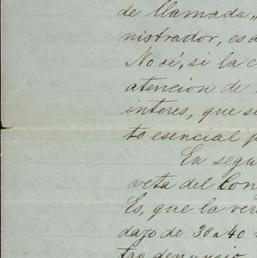 de llamada,
nistrador, es d
No sé, si la c
atencion de
interes, que s
to esencial p
En segu
veta del Con
Es, que la ver
dazo de 30 a 40
tro denuncio